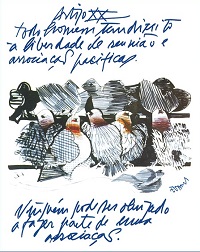 Artigo XX
todo homem tem direito
à liberdade de reunião e
associação pacíficas.
Ninguém pode ser obrigado
a fazer parte de uma
associação.